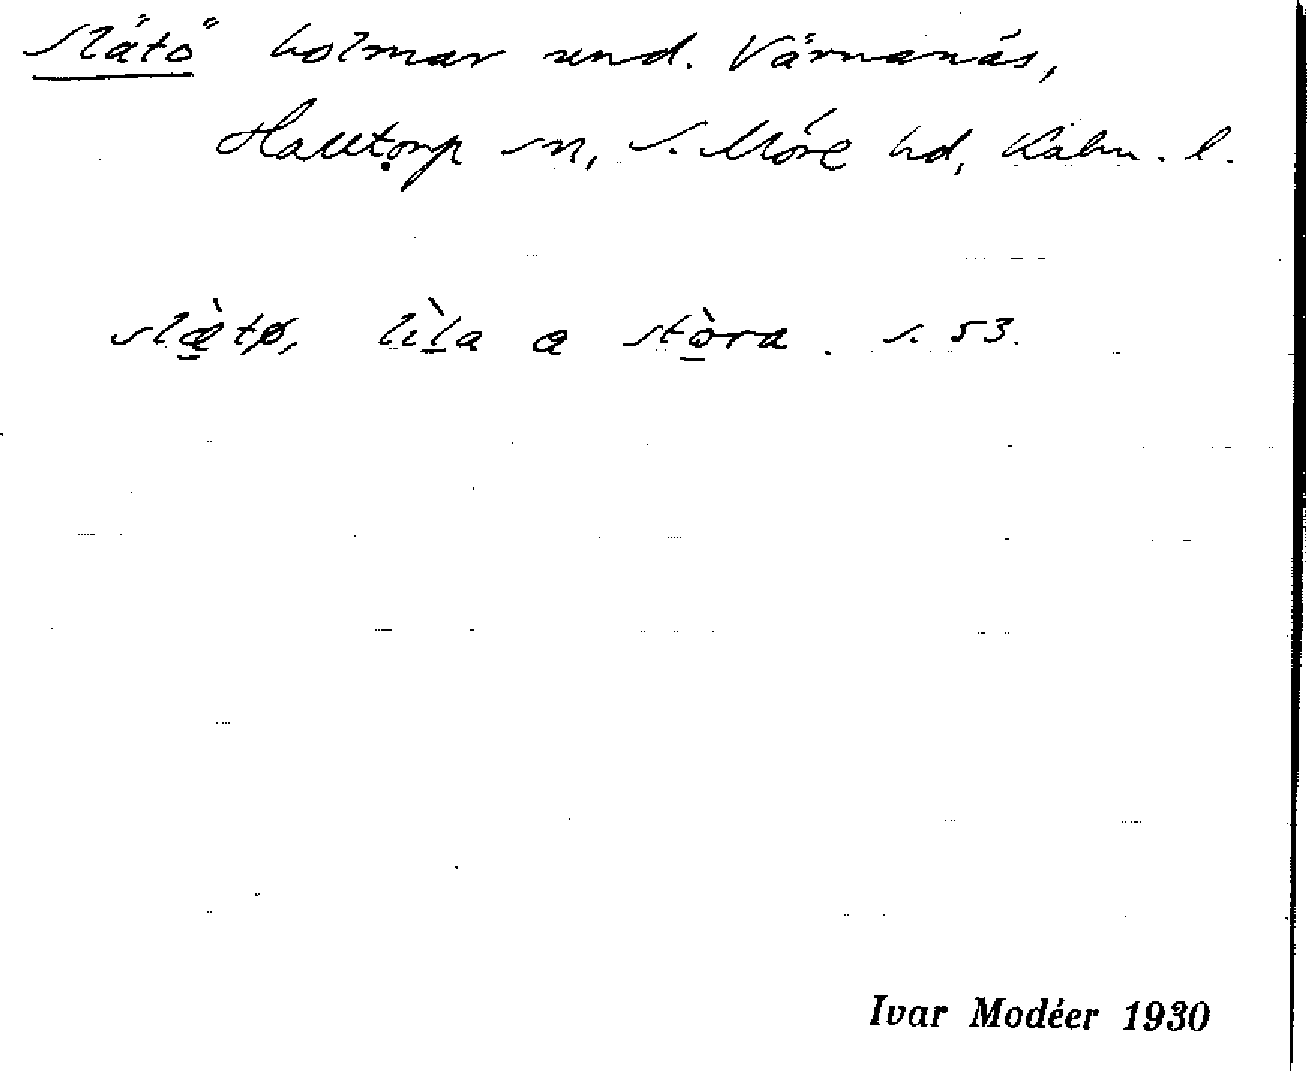 Slätö holmar und. Värnanäs,
Halltorp sn, S. Möre hd, Kalm. l.
slæ̀tø, lìla a stòra. s. 53.
Ivar Modéer 1930